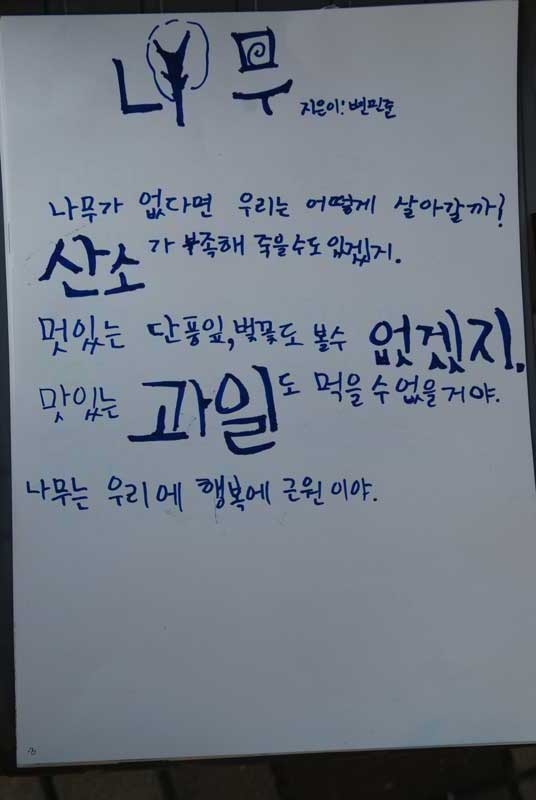 나무
지은이! 변민준
나무가 없다면 우리는 어떻게 살아갈까?
산소가 부족해 죽을수도 있겠지.
멋있는 단풍잎, 벚꽃도 볼수 없겠지.
맛있는 과일도 먹을 수 없을거야.
나무는 우리에 행복에 근원이야.